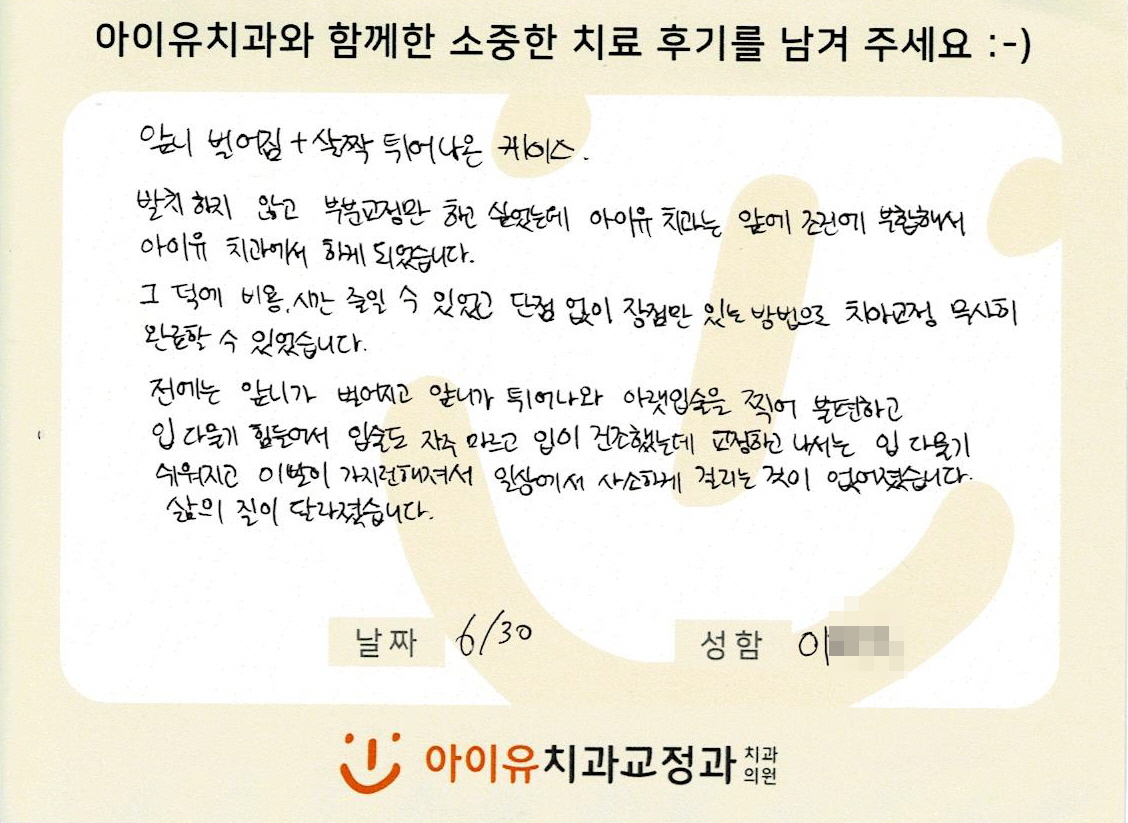 아이유치과와 함께한 소중한 치료 후기를 남겨 주세요 :-)
앞니 벌어짐 + 살짝 튀어나온 케이스.
발치 하지 않고 부분교정만 하고 싶었는데 아이유 치과는 앞에 조건에 부합해서
아이유 치과에서 하게 되었습니다.
그 덕에 비용, 시간 줄일 수 있었고 단점 없이 장점만 있는 방법으로 치아교정 무사히
완료할 수 있었습니다.
전에는 앞니가 벌어지고 앞니가 튀어나와 아랫입술을 찍어 불편하고
입 다물기 힘들어서 입술도 자주 마르고 입이 건조했는데 교정하고 나서는 입 다물기
쉬워지고 이빨이 가지런해져서 일상에서 사소하게 걸리는 것이 없어졌습니다.
삶의 질이 달라졌습니다.
날짜 6/30 성함 이
아이유치과교정과 치과
의원